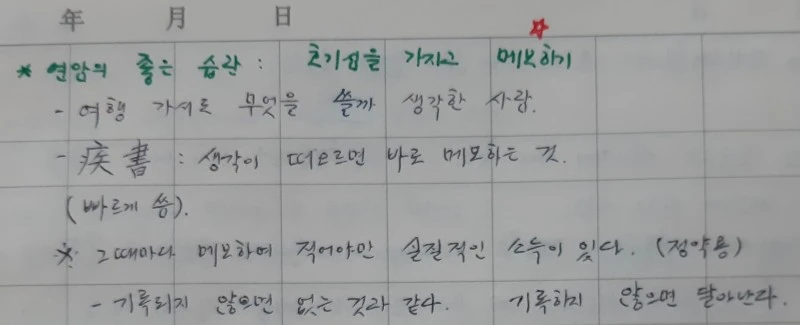 年 月 日
* 연암의 좋은 습관 : 초기심을 가지고 메모하기
- 여행 가서도 무엇을 쓸까 생각한 사람.
- 疾書 : 생각이 떠오르면 바로 메모하는 것.
(빠르게 씀).
※ 그때마다 메모하여 적어야만 실질적인 소득이 있다. (정약용)
- 기록되지 않으면 없는 것과 같다. 기록하지 않으면 달아난다.